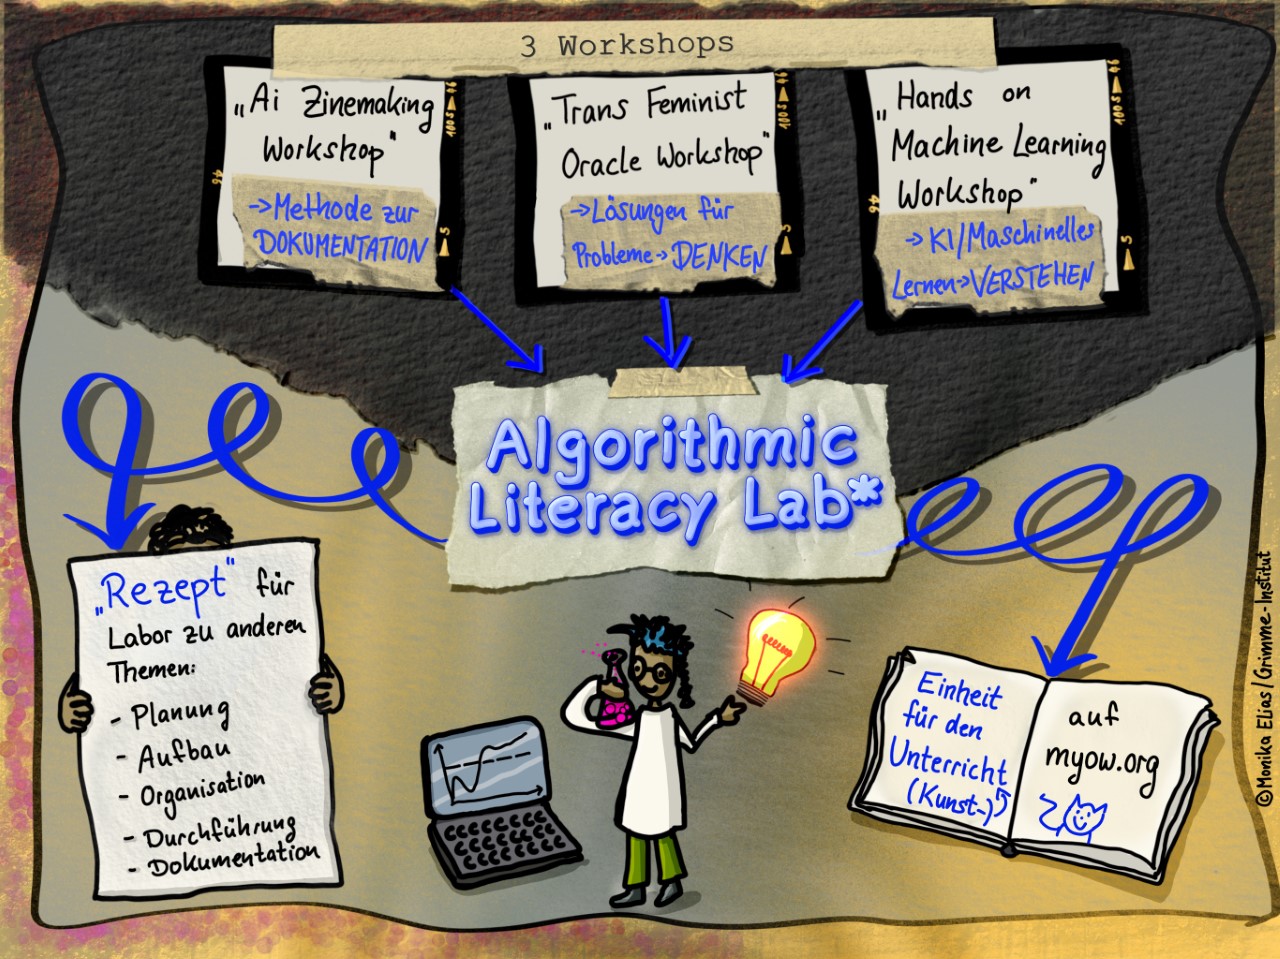 3 Workshops
„Ai Zinemaking
Workshop“
→Methode zur
DOKUMENTATION
„Trans Feminist
Oracle Workshop“
→Lösungen für
Probleme→DENKEN
„Hands on
Machine Learning
Workshop“
→KI/Maschinelles
Lernen→VERSTEHEN
Algorithmic
Literacy Lab*
„Rezept“ für
Labor zu anderen
Themen:
- Planung
- Aufbau
- Organisation
- Durchführung
- Dokumentation
Einheit
für den
Unterricht
(Kunst-)
auf
myow.org
©Monika Elias/Grimme-Institut